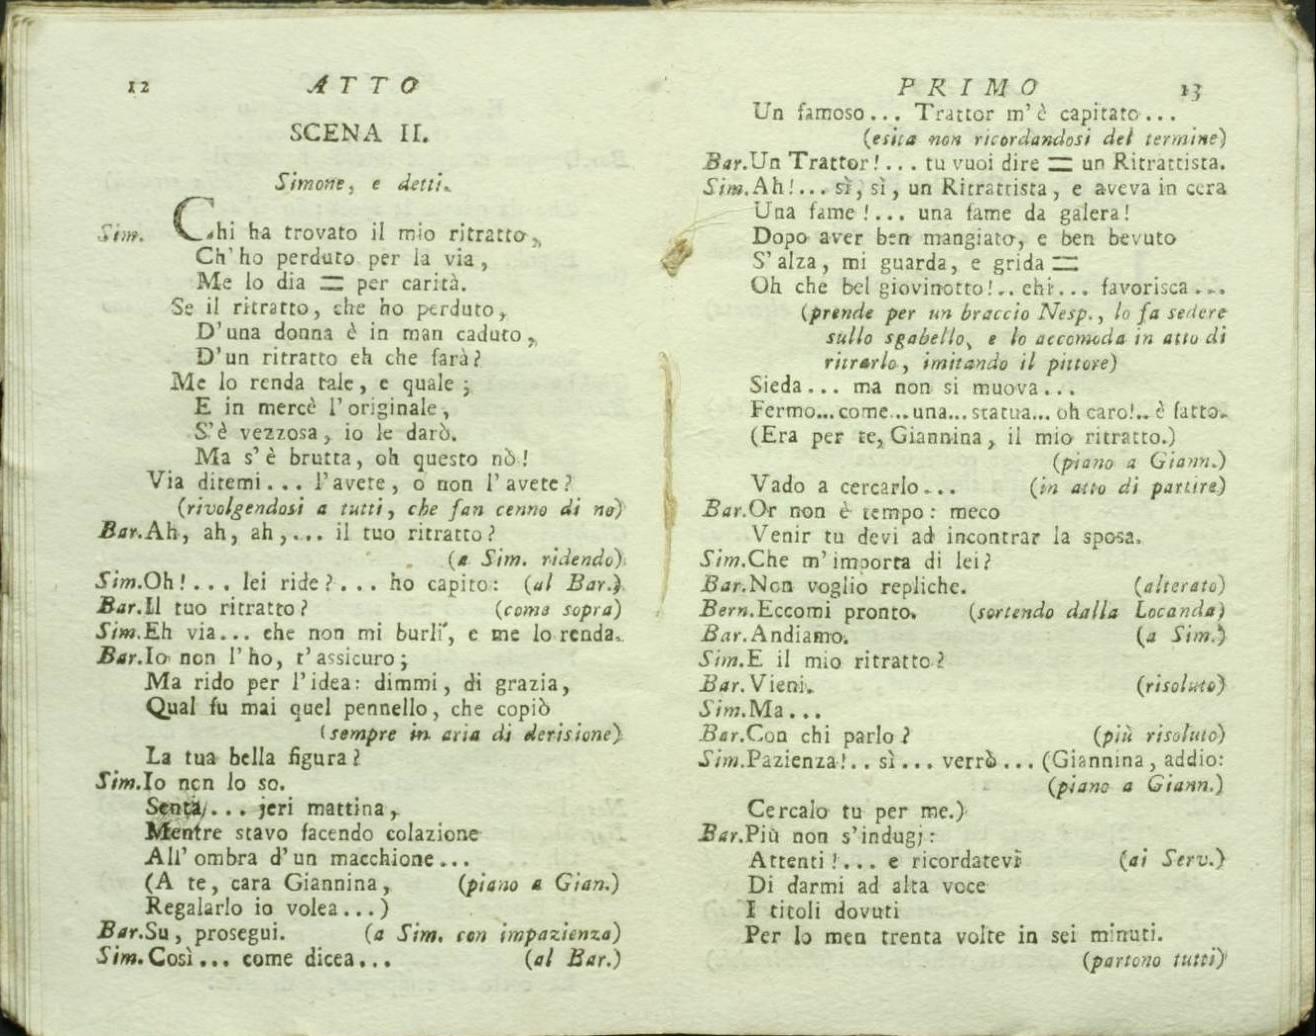 12 ATTO
SCENA II.
Simone, e detti.
Sim. Chi ha trovato il mio ritratto,
Ch'ho perduto per la via,
Me lo dia = per carità.
Se il ritratto, che ho perduto,
D'una donna è in man caduto,
D'un ritratto eh che farà?
Me lo renda tale, e quale;
E in mercè l'originale,
S'è vezzosa, io le darò.
Ma s'è brutta, oh questo nò!
Via ditemi... l'avete, o non l'avete?
(rivolgendosi a tutti, che fan cenno di no)
Bar. Ah, ah, ah,... il tuo ritratto?
(a Sim. ridendo)
Sim. Oh!... lei ride?... ho capito: (al Bar.)
Bar. Il tuo ritratto? (come sopra)
Sim. Eh via... che non mi burli, e me lo renda.
Bar. Io non l'ho, t'assicuro;
Ma rido per l'idea: dimmi, di grazia,
Qual fu mai quel pennello, che copiò
(sempre in aria di derisione)
La tua bella figura?
Sim. Io non lo so.
Senta,... jeri mattina,
Mentre stavo facendo colazione
All'ombra d'un macchione...
(A te, cara Giannina, (piano a Gian.)
Regalarlo io volea...)
Bar. Su, prosegui. (a Sim. con impazienza)
Sim. Così... come dicea... (al Bar.)
PRIMO 13
Un famoso... Trattor m'è capitato...
(esita non ricordandosi del termine)
Bar. Un Trattor!... tu vuoi dire = un Ritrattista.
Sim. Ah!... sì, sì, un Ritrattista, e aveva in cera
Una fame!... una fame da galera!
Dopo aver ben mangiato, e ben bevuto
S'alza, mi guarda, e grida =
Oh che bel giovinotto!.. chi... favorisca...
(prende per un braccio Nesp., lo fa sedere
sullo sgabello, e lo accomoda in atto di
ritrarlo, imitando il pittore)
Sieda... ma non si muova...
Fermo... come... una... statua... oh caro!.. è fatto.
(Era per te, Giannina, il mio ritratto.)
(piano a Giann.)
Vado a cercarlo... (in atto di partire)
Bar. Or non è tempo: meco
Venir tu devi ad incontrar la sposa.
Sim. Che m'importa di lei?
Bar. Non voglio repliche. (alterato)
Bern. Eccomi pronto. (sortendo dalla Locanda)
Bar. Andiamo. (a Sim.)
Sim. E il mio ritratto?
Bar. Vieni. (risoluto)
Sim. Ma...
Bar. Con chi parlo? (più risoluto)
Sim. Pazienza!.. sì... verrò... (Giannina, addio:
(piano a Giann.)
Cercalo tu per me.)
Bar. Più non s'indugj:
Attenti!... e ricordatevi (ai Serv.)
Di darmi ad alta voce
I titoli dovuti
Per lo men trenta volte in sei minuti.
(partono tutti)